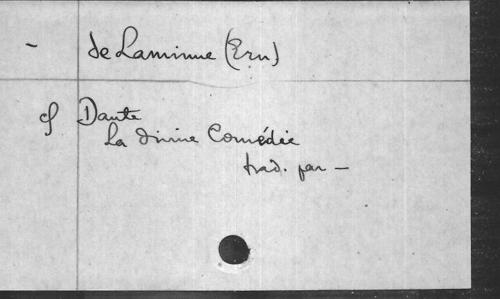 - de Laminne (Ern)
cf Dante
La divine Comédie
trad. par —